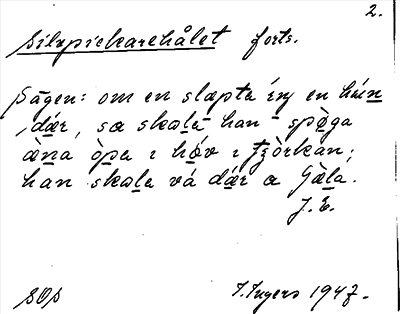 2.
Silvpickarehålet forts.
Sägen: om en slæpte ín en hún
dár, sa skale han spòga
æna òpa i hóv i Fjòrkan;
han skale vá dár a Gæla.
J. E.
SOP
I. Ingers 1947.